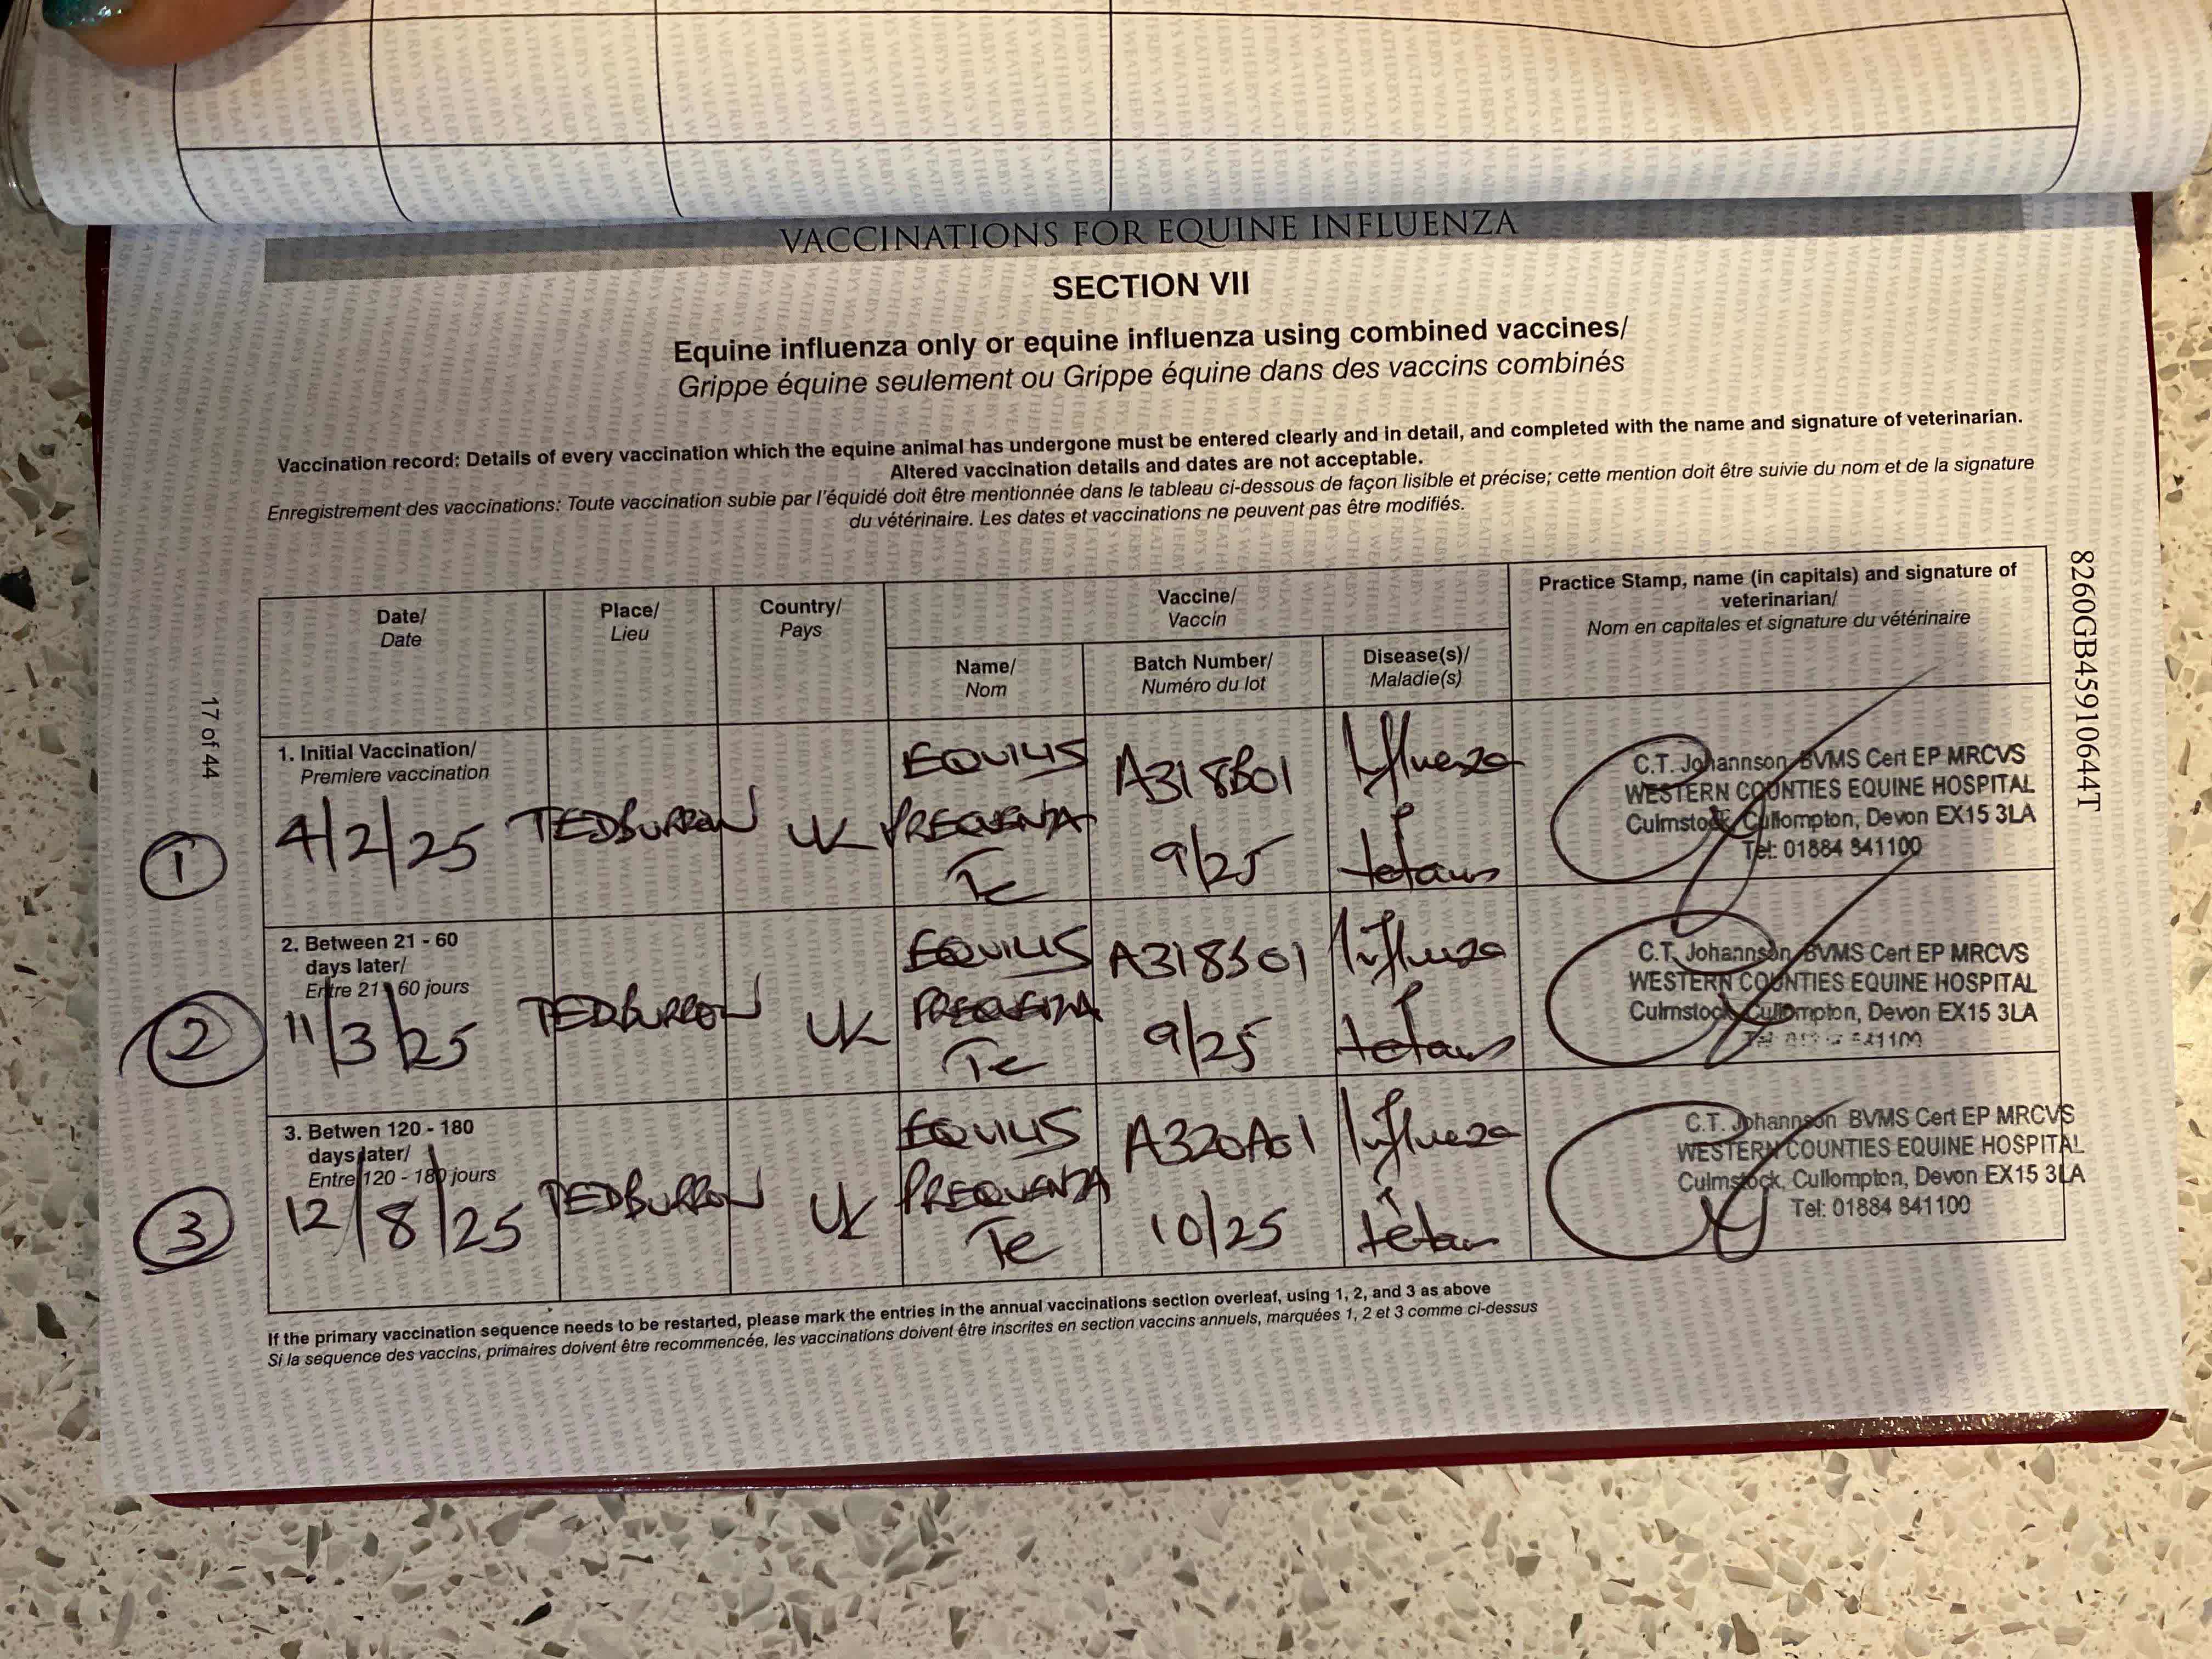 VACCINATIONS FOR EQUINE INFLUENZA
SECTION VII
Equine influenza only or equine influenza using combined vaccines/
Grippe équine seulement ou Grippe équine dans des vaccins combinés
Vaccination record: Details of every vaccination which the equine animal has undergone must be entered clearly and in detail, and completed with the name and signature of veterinarian.
Altered vaccination details and dates are not acceptable.
Enregistrement des vaccinations: Toute vaccination subie par l'équidé doit être mentionnée dans le tableau ci-dessous de façon lisible et précise; cette mention doit être suivie du nom et de la signature
du vétérinaire. Les dates et vaccinations ne peuvent pas être modifiés.
Date/
Date
Place/
Lieu
Country/
Pays
Vaccine/
Vaccin
Name/
Nom
Batch Number/
Numéro du lot
Disease(s)/
Maladie(s)
Practice Stamp, name (in capitals) and signature of
veterinarian/
Nom en capitales et signature du vétérinaire
1. Initial Vaccination/
Premiere vaccination
1
4/2/25
TEDBURROW
UK
EQUILIS
PREQUENZA
Te
A318B01
9/25
Influenza
&
tetanus
C.T. Johannson BVMS Cert EP MRCVS
WESTERN COUNTIES EQUINE HOSPITAL
Culmstock, Cullompton, Devon EX15 3LA
Tel: 01884 841100
2. Between 21 - 60
days later/
Entre 21 - 60 jours
2
11/3/25
TEDBURROW
UK
EQUILIS
PREQUENZA
Te
9/25
Influenza
&
tetanus
C.T. Johannson BVMS Cert EP MRCVS
WESTERN COUNTIES EQUINE HOSPITAL
Culmstock, Cullompton, Devon EX15 3LA
841100
3. Betwen 120 - 180
days later/
Entre 120 - 180 jours
3
12/8/25
TEDBURROW
UK
EQUILIS
PREQUENZA
Te
A320A01
10/25
Influenza
&
tetanus
C.T. Johannson BVMS Cert EP MRCVS
WESTERN COUNTIES EQUINE HOSPITAL
Culmstock, Cullompton, Devon EX15 3LA
Tel: 01884 841100
If the primary vaccination sequence needs to be restarted, please mark the entries in the annual vaccinations section overleaf, using 1, 2, and 3 as above
Si la sequence des vaccins, primaires doivent être recommencée, les vaccinations doivent être inscrites en section vaccins annuels, marquées 1, 2 et 3 comme ci-dessus
17 of 44
8260GB459106644T